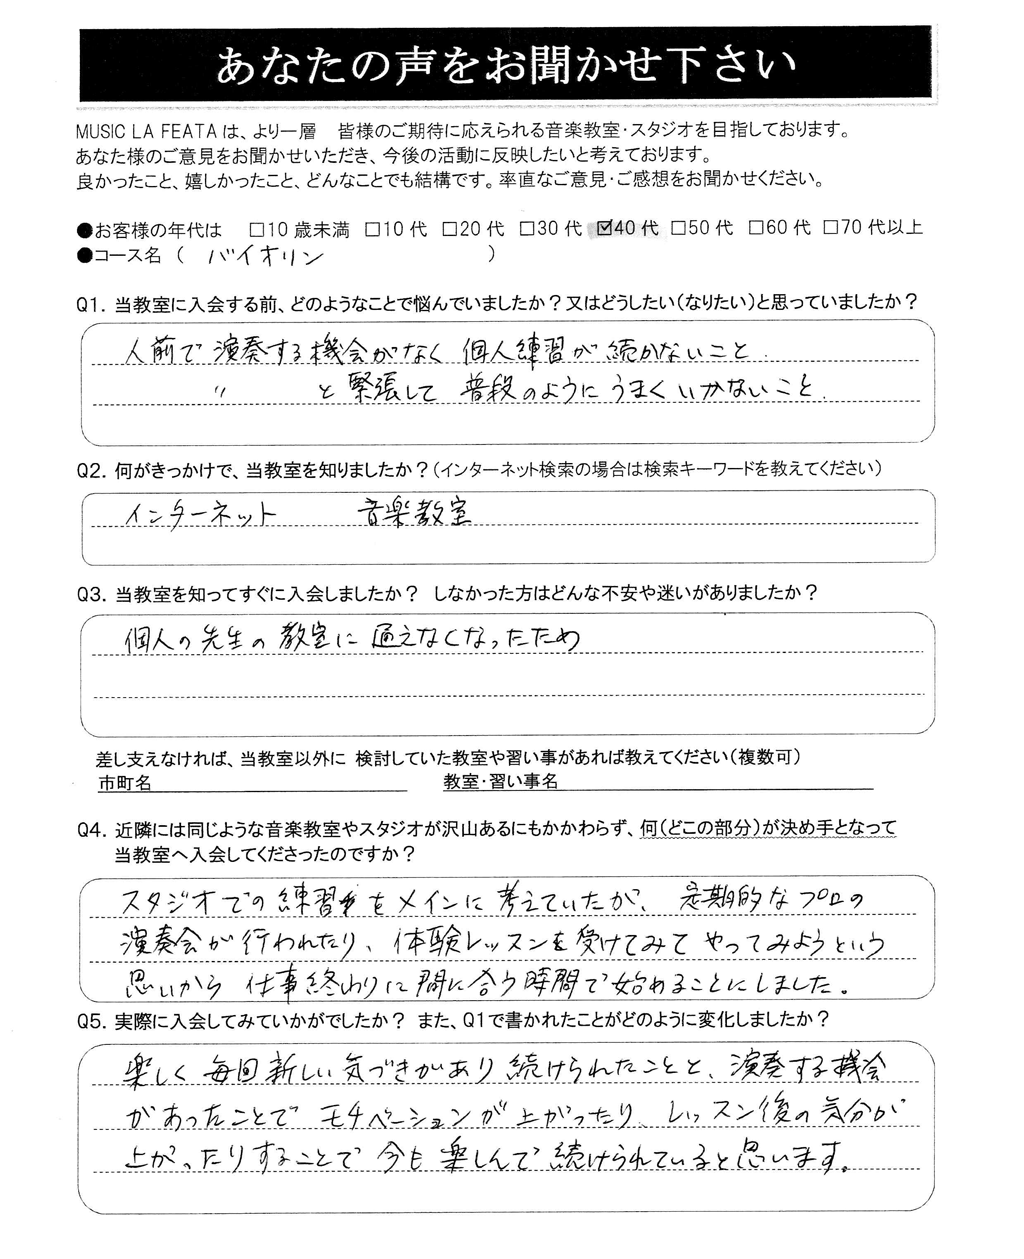 あなたの声をお聞かせ下さい
MUSIC LA FEATAは、より一層　皆様のご期待に応えられる音楽教室・スタジオを目指しております。
あなた様のご意見をお聞かせいただき、今後の活動に反映したいと考えております。
良かったこと、嬉しかったこと、どんなことでも結構です。率直なご意見・ご感想をお聞かせください。
●お客様の年代は　□10歳未満 □10代 □20代 □30代 ☑40代 □50代 □60代 □70代以上
●コース名（　バイオリン　）
Q1．当教室に入会する前、どのようなことで悩んでいましたか？又はどうしたい（なりたい）と思っていましたか？
人前で演奏する機会がなく 個人練習が続かないこと．
〃　と緊張して 普段のようにうまくいかないこと．
Q2．何がきっかけで、当教室を知りましたか？（インターネット検索の場合は検索キーワードを教えてください）
インターネット　音楽教室
Q3．当教室を知ってすぐに入会しましたか？　しなかった方はどんな不安や迷いがありましたか？
個人の先生の教室に通えなくなったため
差し支えなければ、当教室以外に 検討していた教室や習い事があれば教えてください（複数可）
市町名　教室・習い事名
Q4．近隣には同じような音楽教室やスタジオが沢山あるにもかかわらず、何（どこの部分）が決め手となって
当教室へ入会してくださったのですか？
スタジオでの練習をメインに考えていたが、定期的なプロの
演奏会が行われたり、体験レッスンを受けてみて やってみようという
思いから 仕事終わりに間に合う時間で始めることにしました。
Q5．実際に入会してみていかがでしたか？ また、Q1で書かれたことがどのように変化しましたか？
楽しく 毎回新しい気づきがあり続けられたことと、演奏する機会
があったことで モチベーションが上がったり、レッスン後の気分が
上がったりすることで 今も楽しんで続けられていると思います。